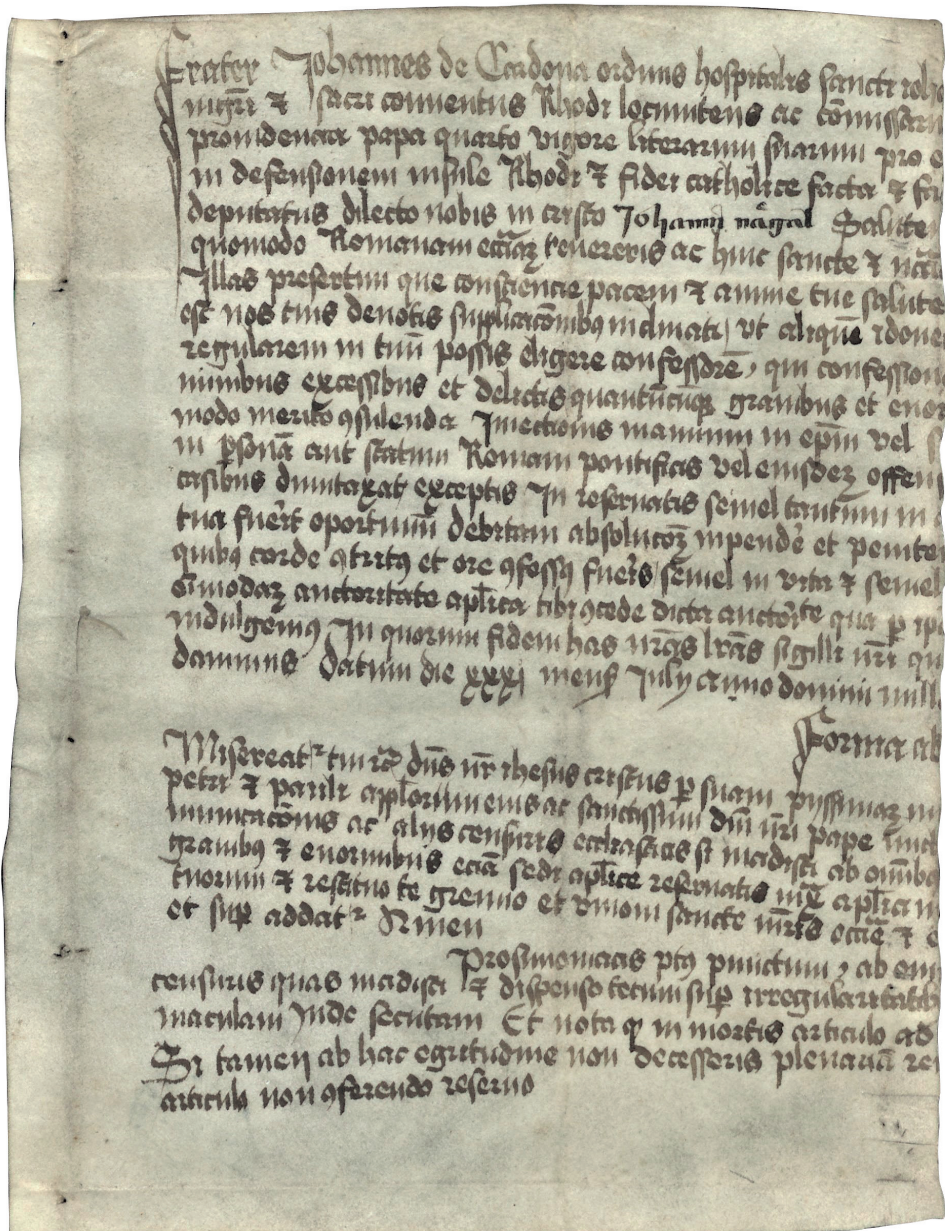 Frater Johannes de Cardona ordinis hospitalis sancti
mgri et sacri conventus Rhodi locumtenens ac comissari
providencia papa quarto vigore literarum suarum pro
in defensionem insule Rhodi et fidei catholice facta et
deputatus dilecto nobis in cristo Johanni nagal Salute
quomodo Romanam tenereris ac huic sancte et
Illas presertim que consciencie pacem et anime tue salute
est nos tuis devotis supplicacoibus inclinati, vt alique idone
regularem in tuu possis eligere confessore, qui confession
minibus excessibus et delictis quantucuqz gravibus et enor
modo merito 9sulenda Iniectionis manuum in epm vel
in psona aut statum Romani pontificis vel eiusdez offen
casibus dumtaxat exceptis In reservatis semel tantum in
tua fuerit oportunu debitam absolucoz inpende et penite
quib9 corde 9trit9 et ore 9fess9 fueris semel in vita et semel
omodaz auctoritate aplica tibi 9cede dicta auctorte qua p ip
indulgem9 In quorum fidem has nras lras sigilli nri
damus Datum die xxxj mens July anno domini mill
Forma ab
Misereat tui dns nr ihesus cristus p suam pyssimaz
petri et pauli apploruum eius ac sanctissimi dni nri pape
municacois ac alys censuris ecclesiasticis si incidisti ab omib9
gravib9 et enormibus ecia sedi aplice reservatis aplica
tuorum et restituo te gremio et vnioni sancte mris et
et sup addat Amen
Pro simoniacis pt9 punctum, ab
censuris quas incidisti et dispenso tecum sup irregularitatib
maculam Inde secutam Et nota q in mortis articulo ad
Si tamen ab hac egritudine non decesseris plenaria
articulo non 9ferendo reservo